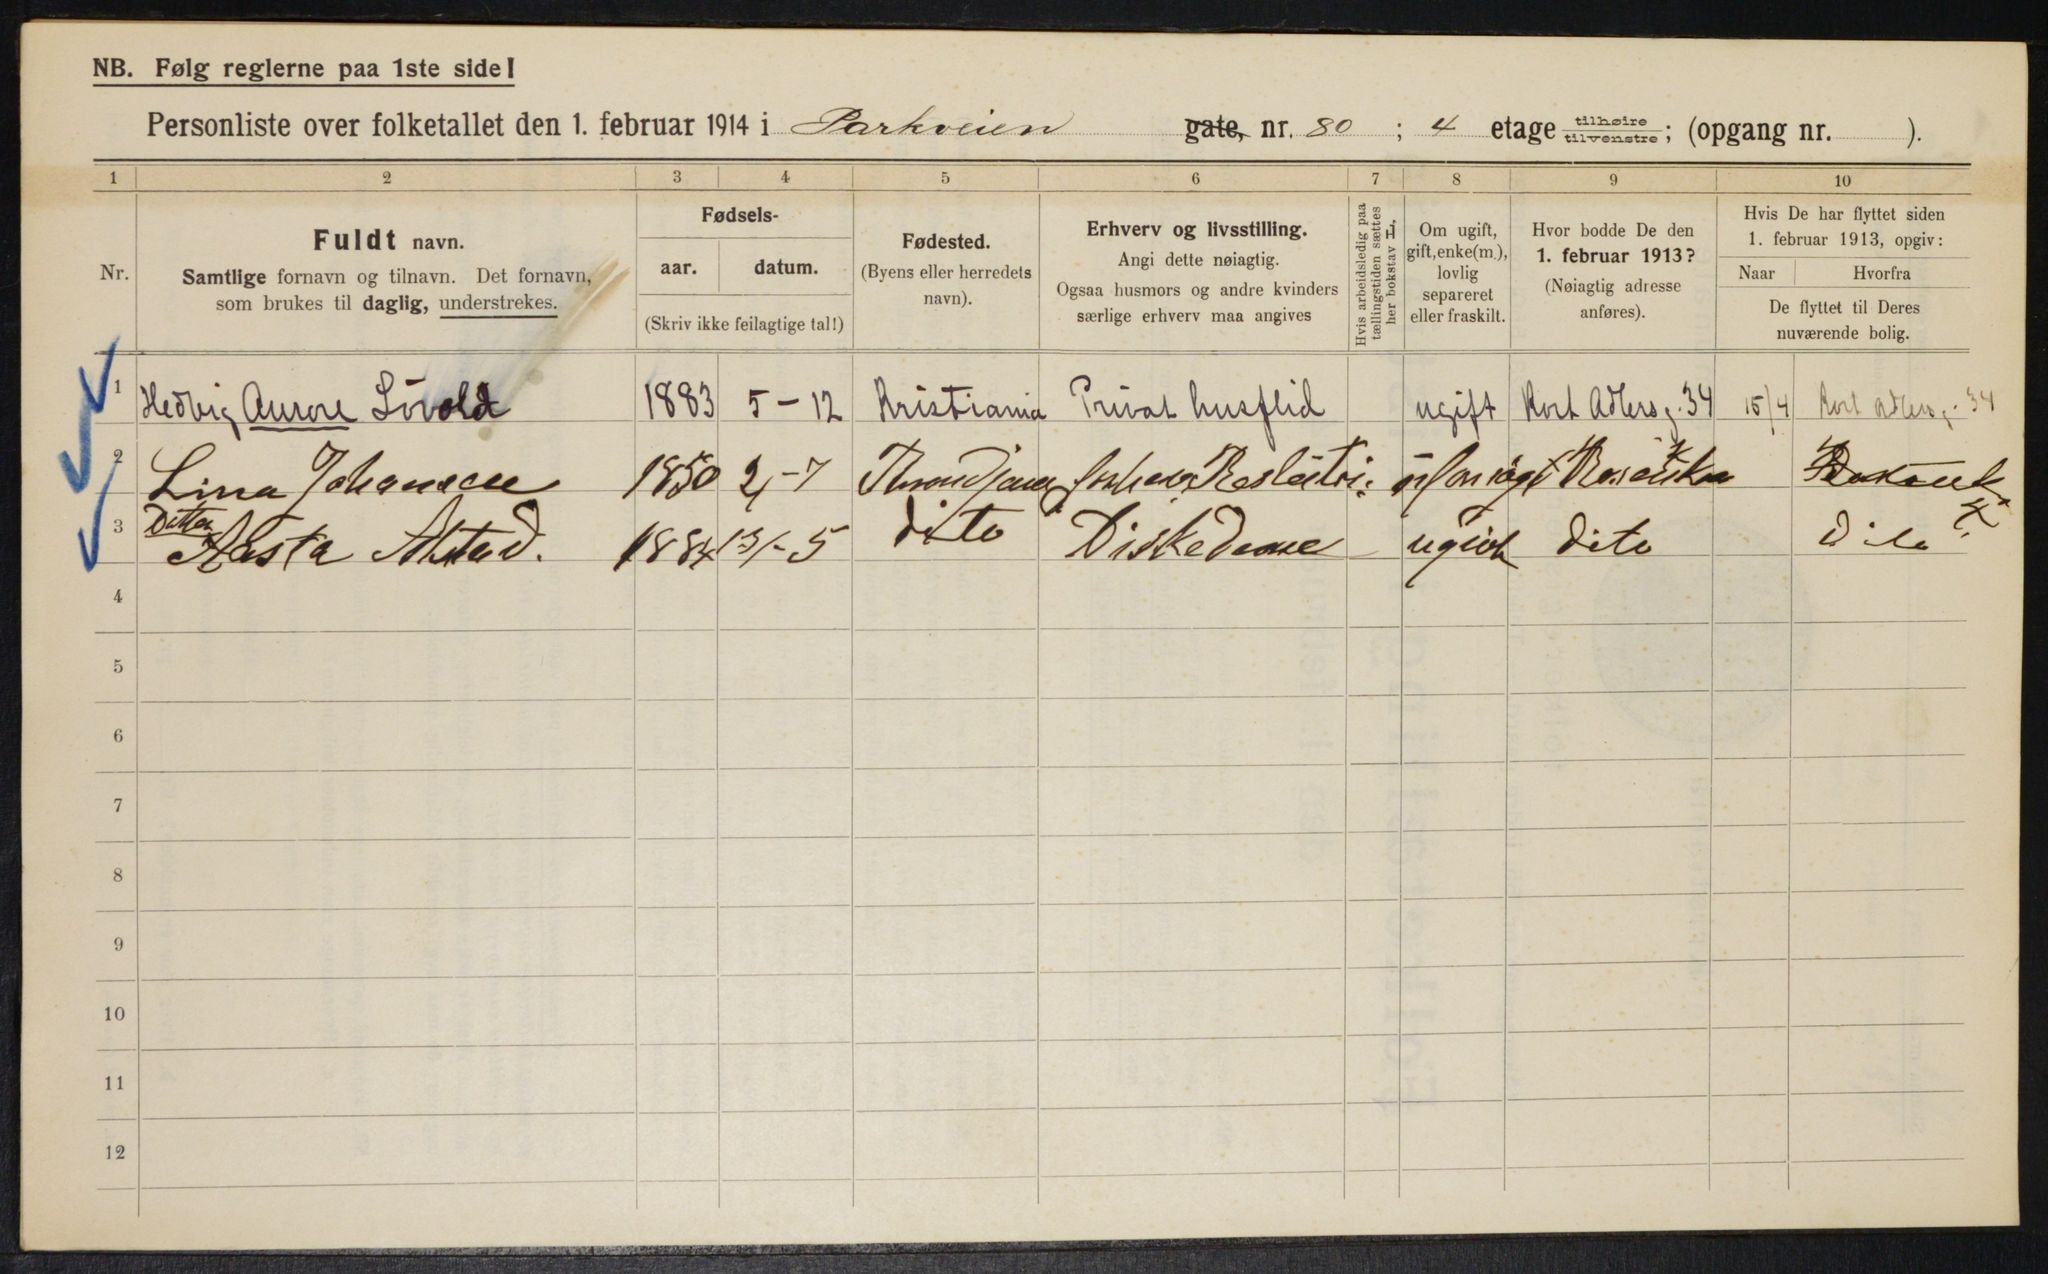 NB. Følg reglerne paa 1ste side!
Personliste over folketallet den 1. februar 1914 i Parkveien gate, nr. 80 ; 4 etage tilhøire tilvenstre; (opgang nr. ).
1 2 3 4 5 6 7 8 9 10
Nr.
Fuldt navn.
Samtlige fornavn og tilnavn. Det fornavn,
som brukes til daglig, understrekes.
Fødsels-
aar. datum.
(Skriv ikke feilagtige tal!)
Fødested.
(Byens eller herredets
navn).
Erhverv og livsstilling.
Angi dette nøiagtig.
Ogsaa husmors og andre kvinders
særlige erhverv maa angives
Hvis arbeidsledig paa
tællingstiden sættes
her bokstav L,
Om ugift,
gift, enke(m.),
lovlig
separeret
eller fraskilt.
Hvor bodde De den
1. februar 1913?
(Nøiagtig adresse
anføres).
Hvis De har flyttet siden
1. februar 1913, opgiv:
Naar Hvorfra
De flyttet til Deres
nuværende bolig.
1 Hedvig Aurore Lövold 1883 5-12 Kristiania Privat husflid ugift Kort Adlersg. 34 15/4 Kort Adlersg. 34
2 Lina Johansen 1850 2-7
3 Datter Aasta 1884 13-5 dito Diskedame ugift dito Dito
4
5
6
7
8
9
10
11
12